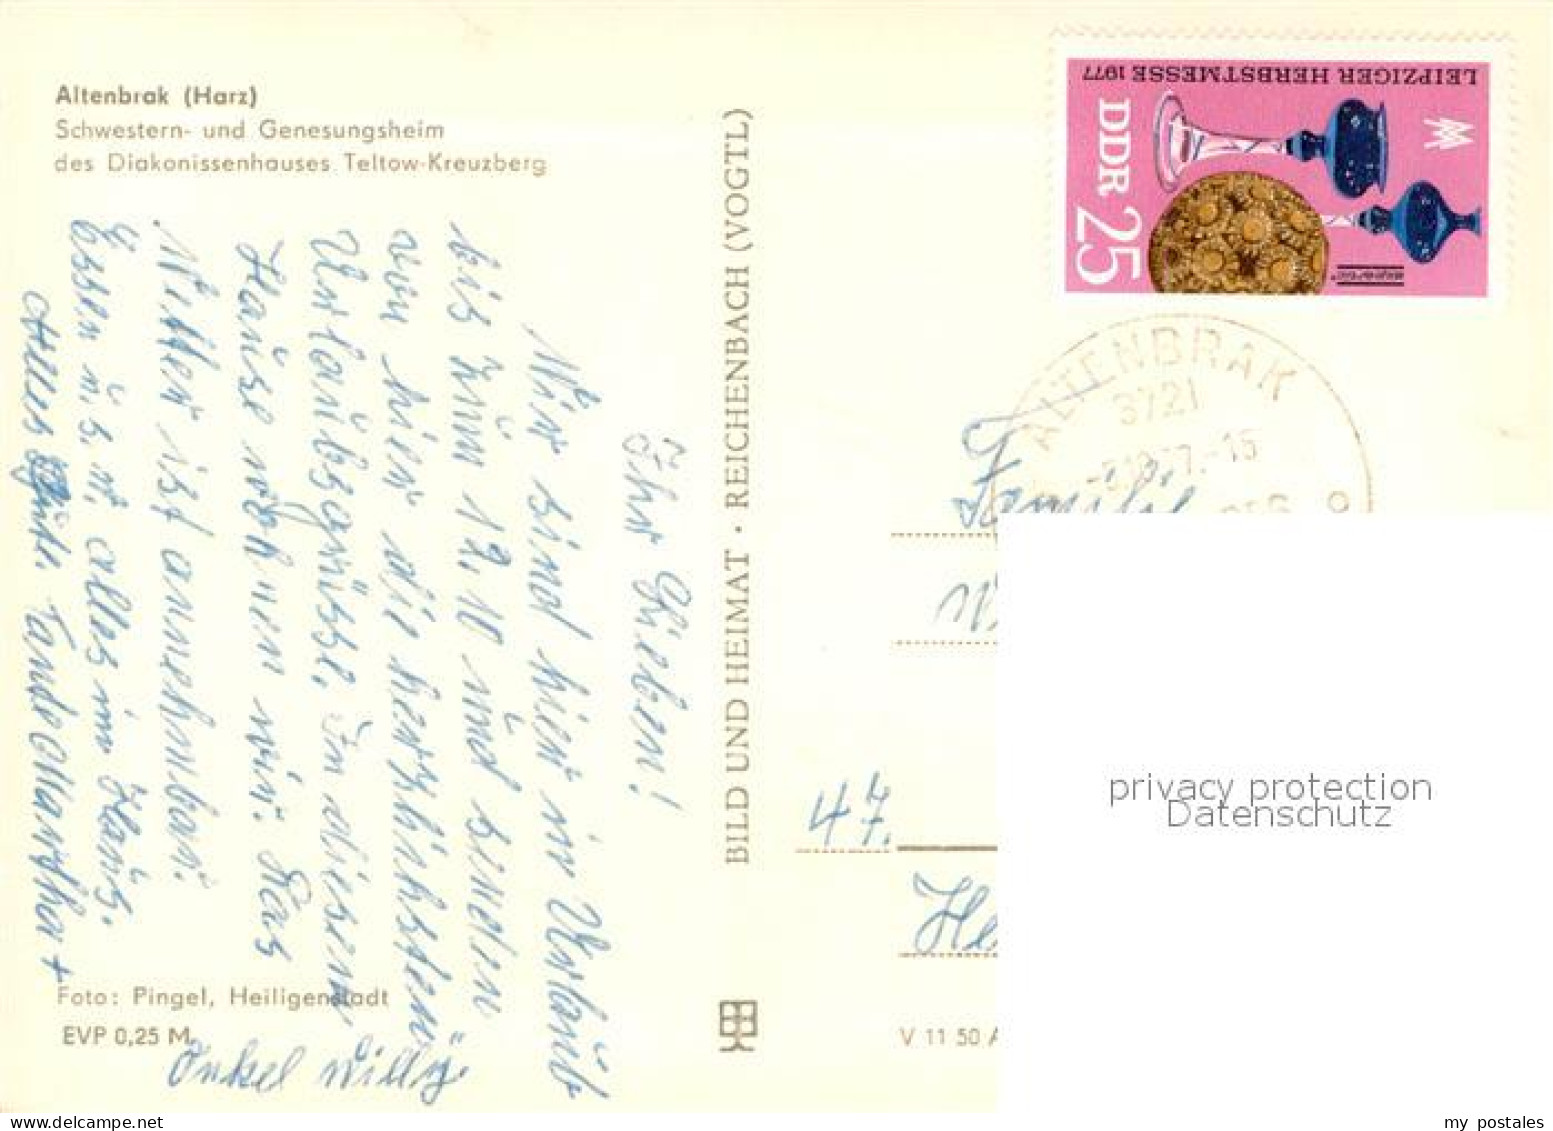 Altenbrak (Harz)
Schwestern- und Genesungsheim
des Diakonissenhauses Teltow-Kreuzberg
Ihr Lieben!
Wir sind hier in Urlaub
bis zum 12.10 und senden
von hier die herzlichsten
Urlaubsgrüsse. In diesem
Hause wohnen wir. Das
Wetter ist annehmbar.
Essen u.s.w. alles im Haus.
Alles Gute. Tante Martha +
Onkel Willy.
Foto: Pingel, Heiligenstadt
EVP 0,25 M
BILD UND HEIMAT · REICHENBACH (VOGTL)
V 11 50 A
LEIPZIGER HERBSTMESSE 1977
DDR 25
ALTENBRAK
3721
Familie
47.
He
privacy protection
Datenschutz
my postales